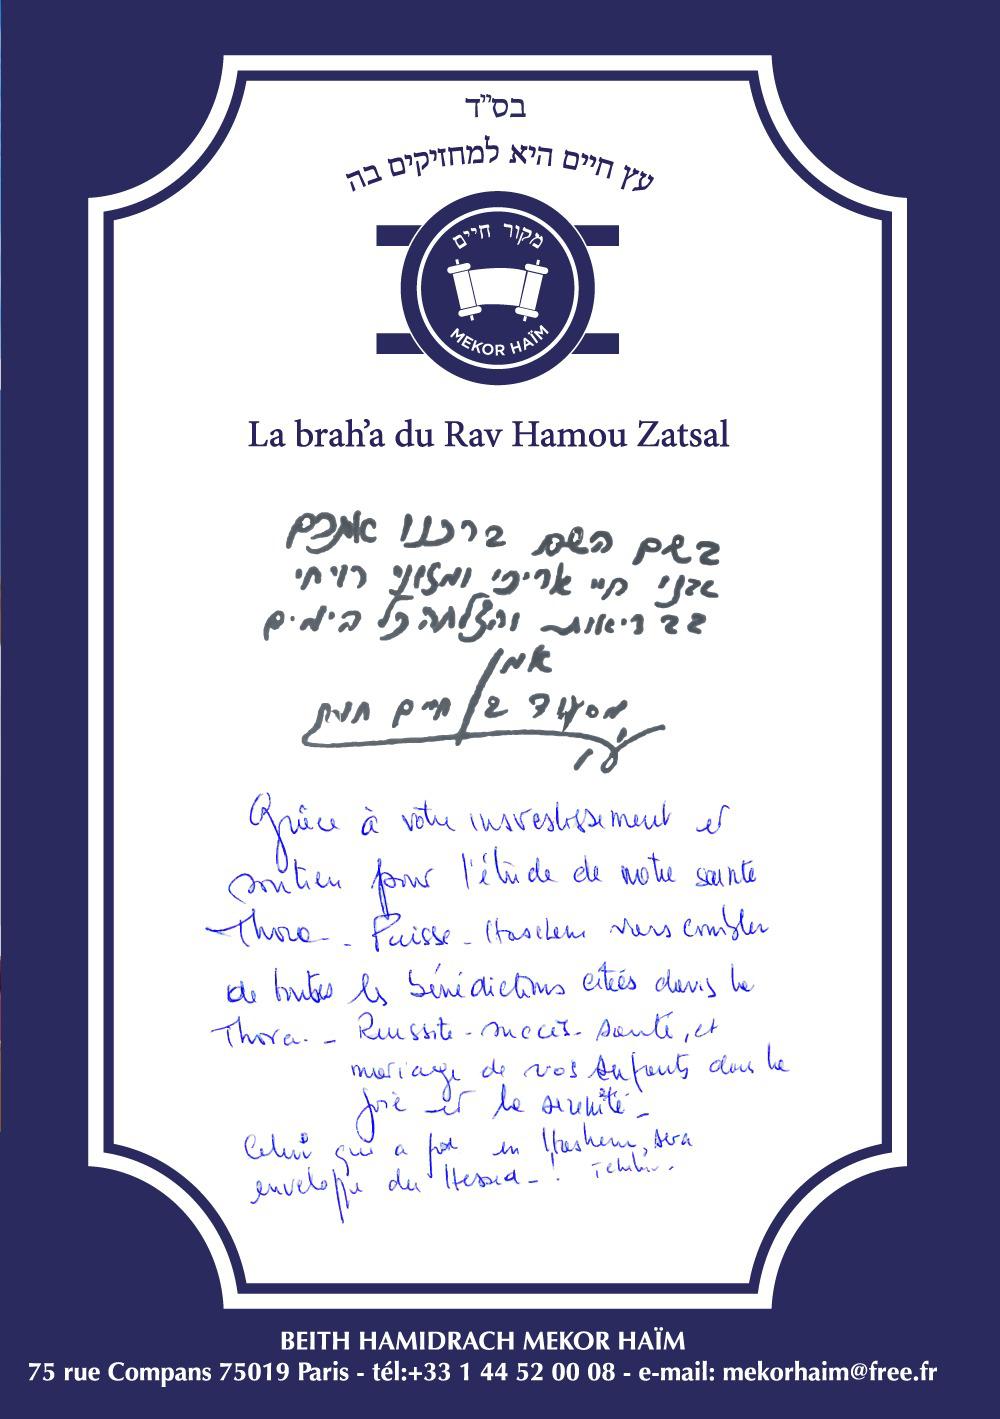 בס"ד
עץ חיים היא למחזיקים בה
מקור חיים
MEKOR HAÏM
La brah'a du Rav Hamou Zatsal
בשם השם ברכנו אתכם
אבני חיי אריכי ומזוני רויחי
בבריאות והצלחה כל הימים
אמן
מסעוד בן חיים חמו
Grâce à votre insvestissement et
soutien pour l'étude de notre sainte
Thora - Puisse - Haschem vous combler
de toutes les bénédictions citées dans la
Thora. - Reussite - succès - santé, et
mariage de vos enfants dans la
joie et la serenité -
Celui qui a foi en Hashem, sera
enveloppe du Hessed - !
BEITH HAMIDRACH MEKOR HAÏM
75 rue Compans 75019 Paris - tél:+33 1 44 52 00 08 - e-mail: mekorhaim@free.fr